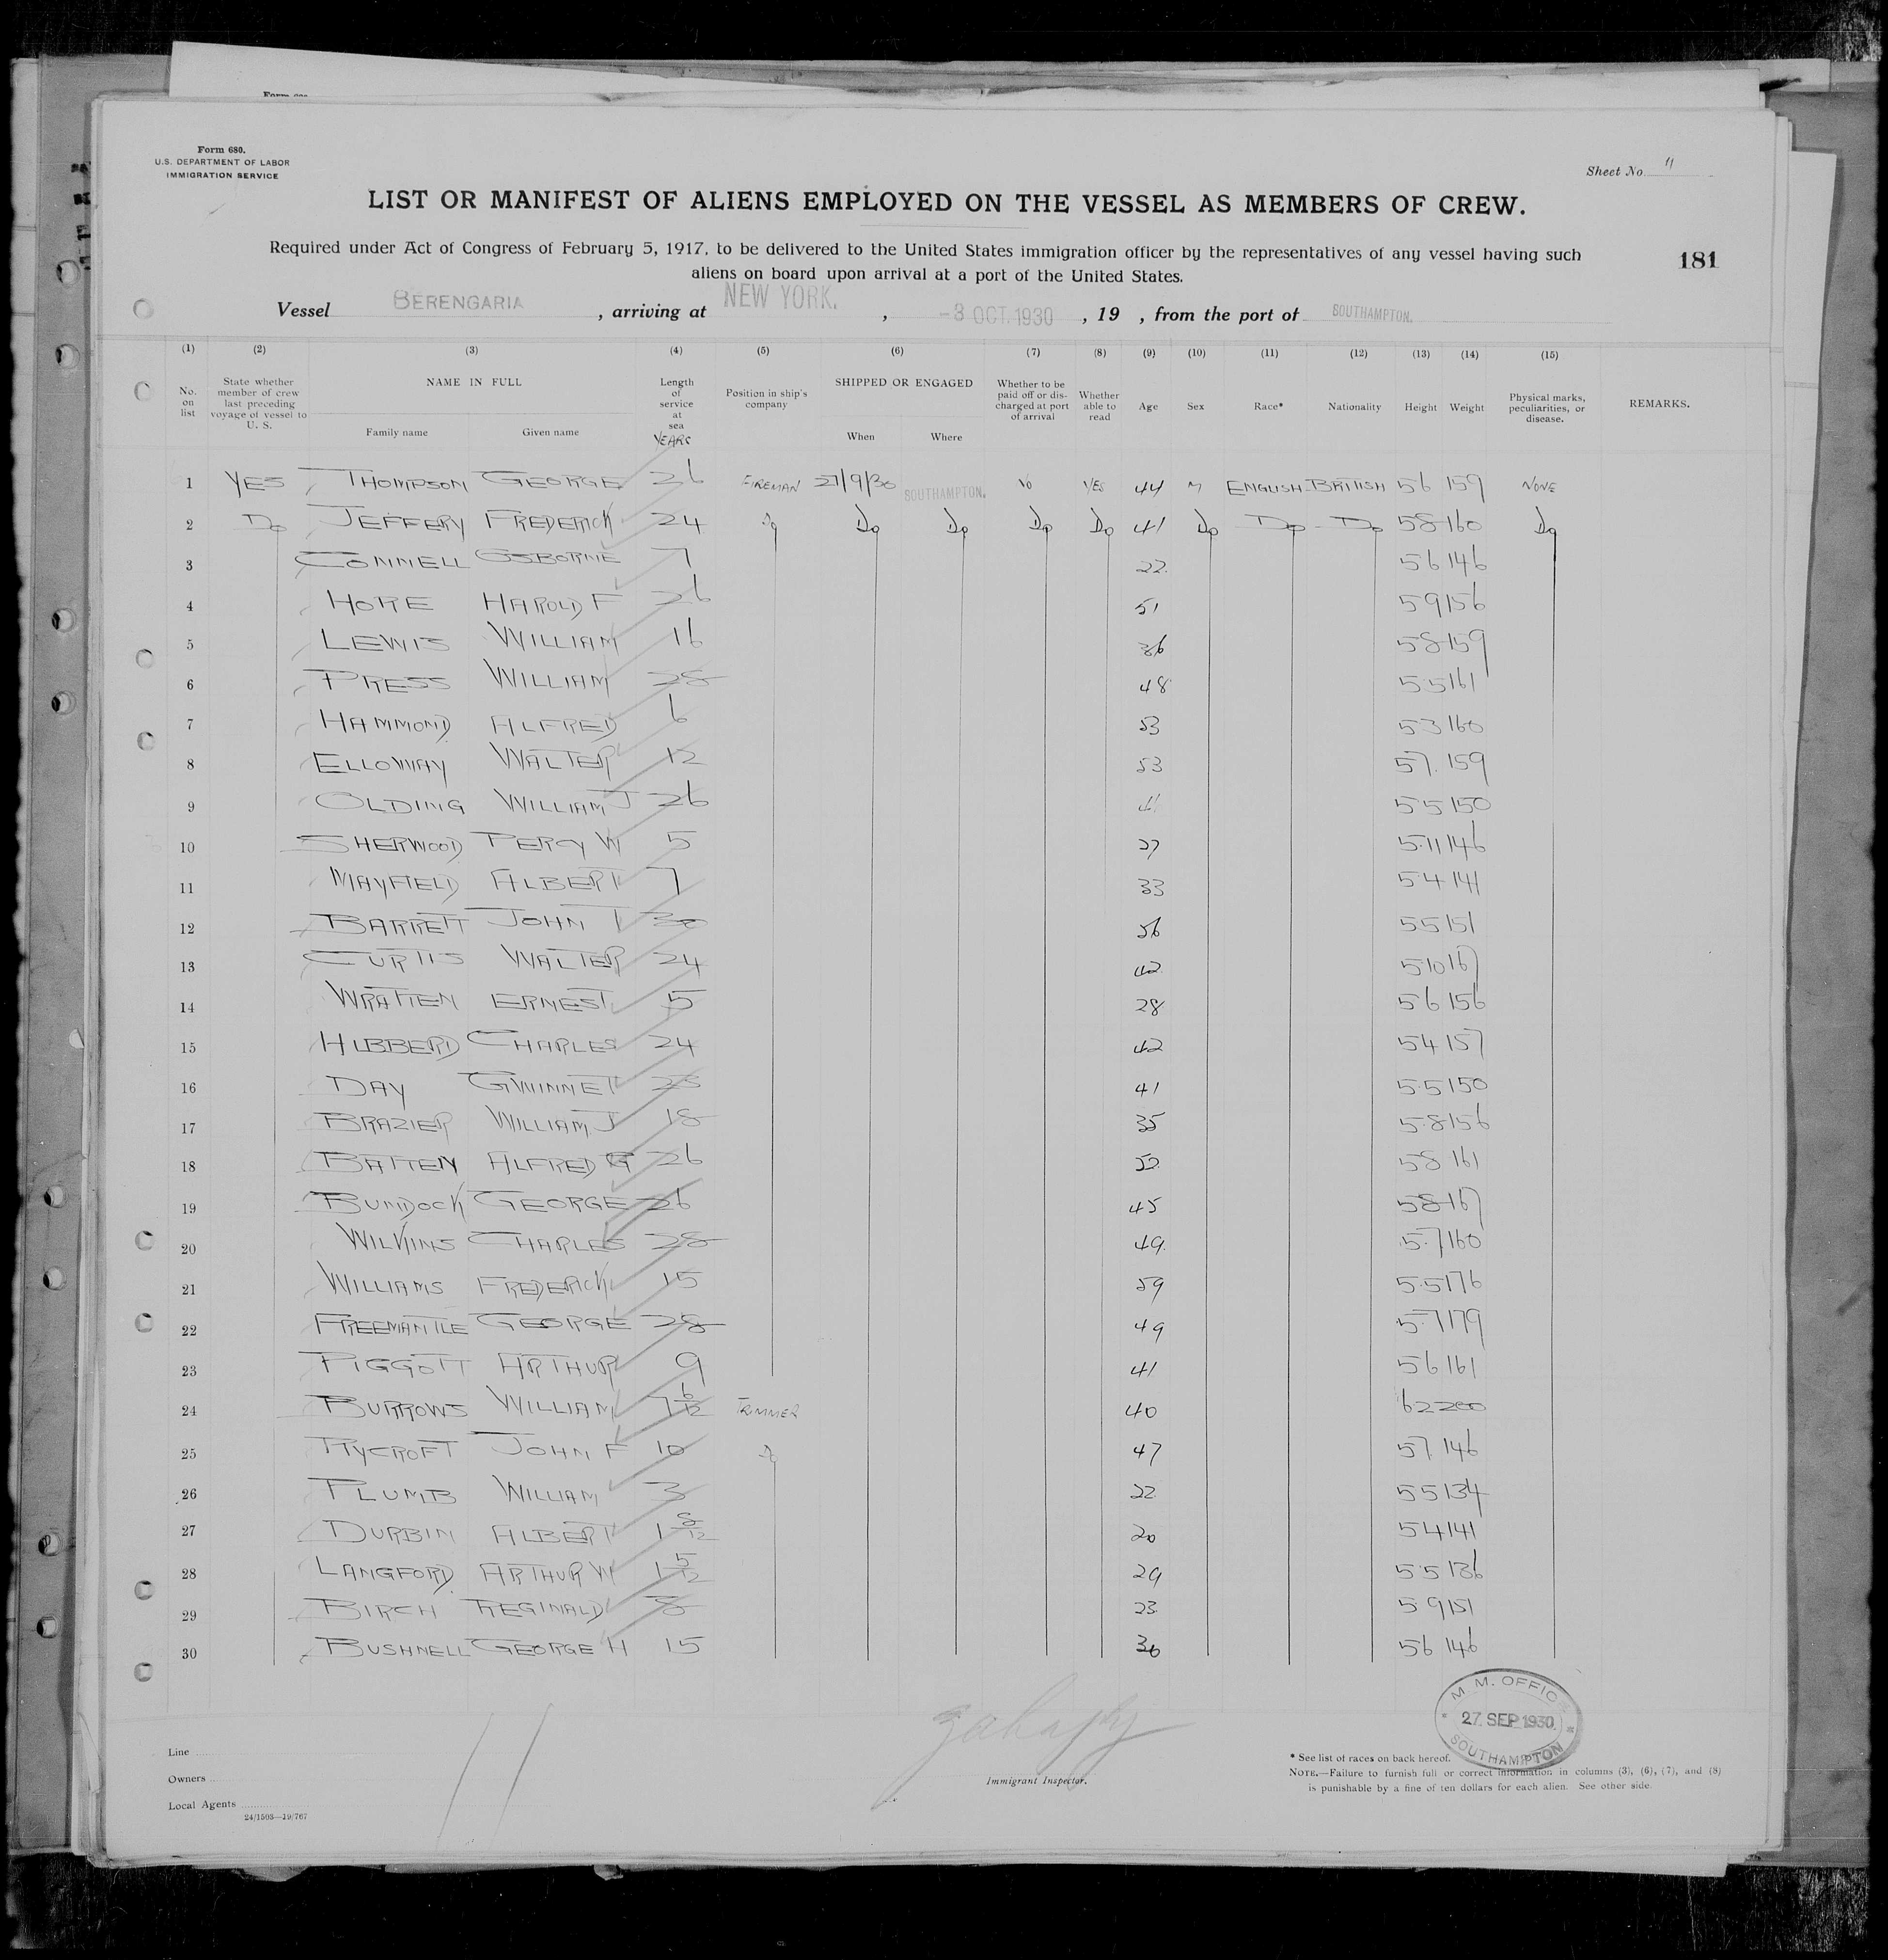 Form 680.
U.S. DEPARTMENT OF LABOR
IMMIGRATION SERVICE
Sheet No. 11
LIST OR MANIFEST OF ALIENS EMPLOYED ON THE VESSEL AS MEMBERS OF CREW.
Required under Act of Congress of February 5, 1917, to be delivered to the United States immigration officer by the representatives of any vessel having such
aliens on board upon arrival at a port of the United States.
181
Vessel BERENGARIA, arriving at NEW YORK., -3 OCT. 1930, 19 , from the port of SOUTHAMPTON.
(1) (2) (3) (4) (5) (6) (7) (8) (9) (10) (11) (12) (13) (14) (15)
No. on list State whether member of crew last preceding voyage of vessel to U. S. NAME IN FULL Family name Given name Length of service at sea YEARS Position in ship's company SHIPPED OR ENGAGED When Where Whether to be paid off or discharged at port of arrival Whether able to read Age Sex Race* Nationality Height Weight Physical marks, peculiarities, or disease. REMARKS.
1 YES THOMPSON GEORGE 26 FIREMAN 27/9/30 SOUTHAMPTON. NO YES 44 M ENGLISH BRITISH 56 159 NONE
2 Do JEFFERY FREDERICK 24 Do Do Do Do Do 41 Do Do Do 58 160 Do
3 CONNELL OSBORNE 7 22 56 146
4 HORE HAROLD F 26 51 59 156
5 LEWIS WILLIAM 16 36 58 159
6 PRESS WILLIAM 28 48 55 161
7 HAMMOND ALFRED 6 53 53 160
8 ELLOWAY WALTER 12 53 57. 159
9 OLDING WILLIAM J 26 41 55 150
10 SHERWOOD PERCY W 5 27 5.11 146
11 MAYFIELD ALBERT 7 33 5.4 141
12 BARRETT JOHN T 30 56 5.5 151
13 CURTIS WALTER 24 42 5.10 167
14 WRATTEN ERNEST 5 28 56 156
15 HIBBERD CHARLES 24 42 54 157
16 DAY GWINNET 25 41 5.5 150
17 BRAZIER WILLIAM. J 18 35 5.8 156
18 BATTEN ALFRED G 26 52 58 161
19 BUNDOCK GEORGE 26 45 58 167
20 WILKINS CHARLES 28 49. 5.7 160
21 WILLIAMS FREDERICK 15 59 5.5 176
22 FREEMANTLE GEORGE 28 49 5.7 179
23 PIGGOTT ARTHUR 9 41 56 161
24 BURROWS WILLIAM 7 6/12 TRIMMER 40 62 200
25 RYCROFT JOHN F 10 Do 47 57 146
26 PLUMB WILLIAM 3 22 55 134
27 DURBIN ALBERT 1 8/12 20 54 141
28 LANGFORD ARTHUR W 1 5/12 29 5.5 136
29 BIRCH REGINALD 8 23 5.9 151
30 BUSHNELL GEORGE H 15 36 56 146
M. M. OFFICE
27 SEP 1930
SOUTHAMPTON
11
Line
Owners
Local Agents
24/1503—19/767
Immigrant Inspector.
* See list of races on back hereof.
NOTE.—Failure to furnish full or correct information in columns (3), (6), (7), and (8)
is punishable by a fine of ten dollars for each alien. See other side.